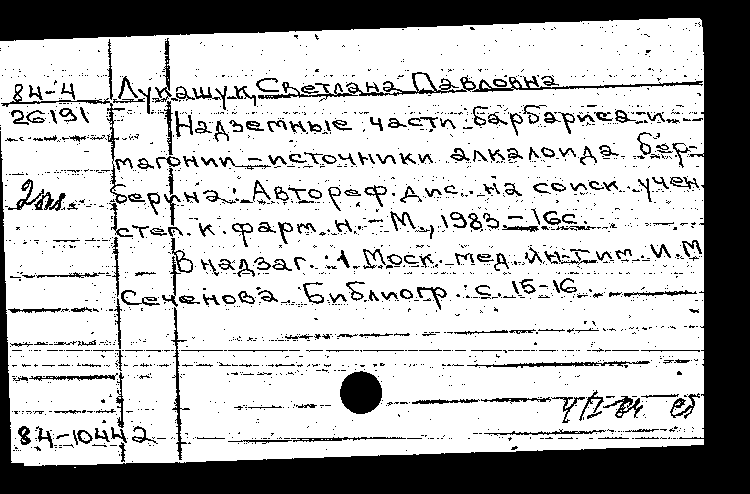 84-4 Лукашук, Светлана Павловна
26191 Надземные части барбариса и
магонии - источники алкалоида бер-
2экз. берина: Автореф. дис. на соиск. учен.
степ. к. фарм. н. - М., 1983. - 16с.
В надзаг.: 1 Моск. мед. ин-т им. И.М.
Сеченова. Библиогр.: с. 15-16.
84-10442